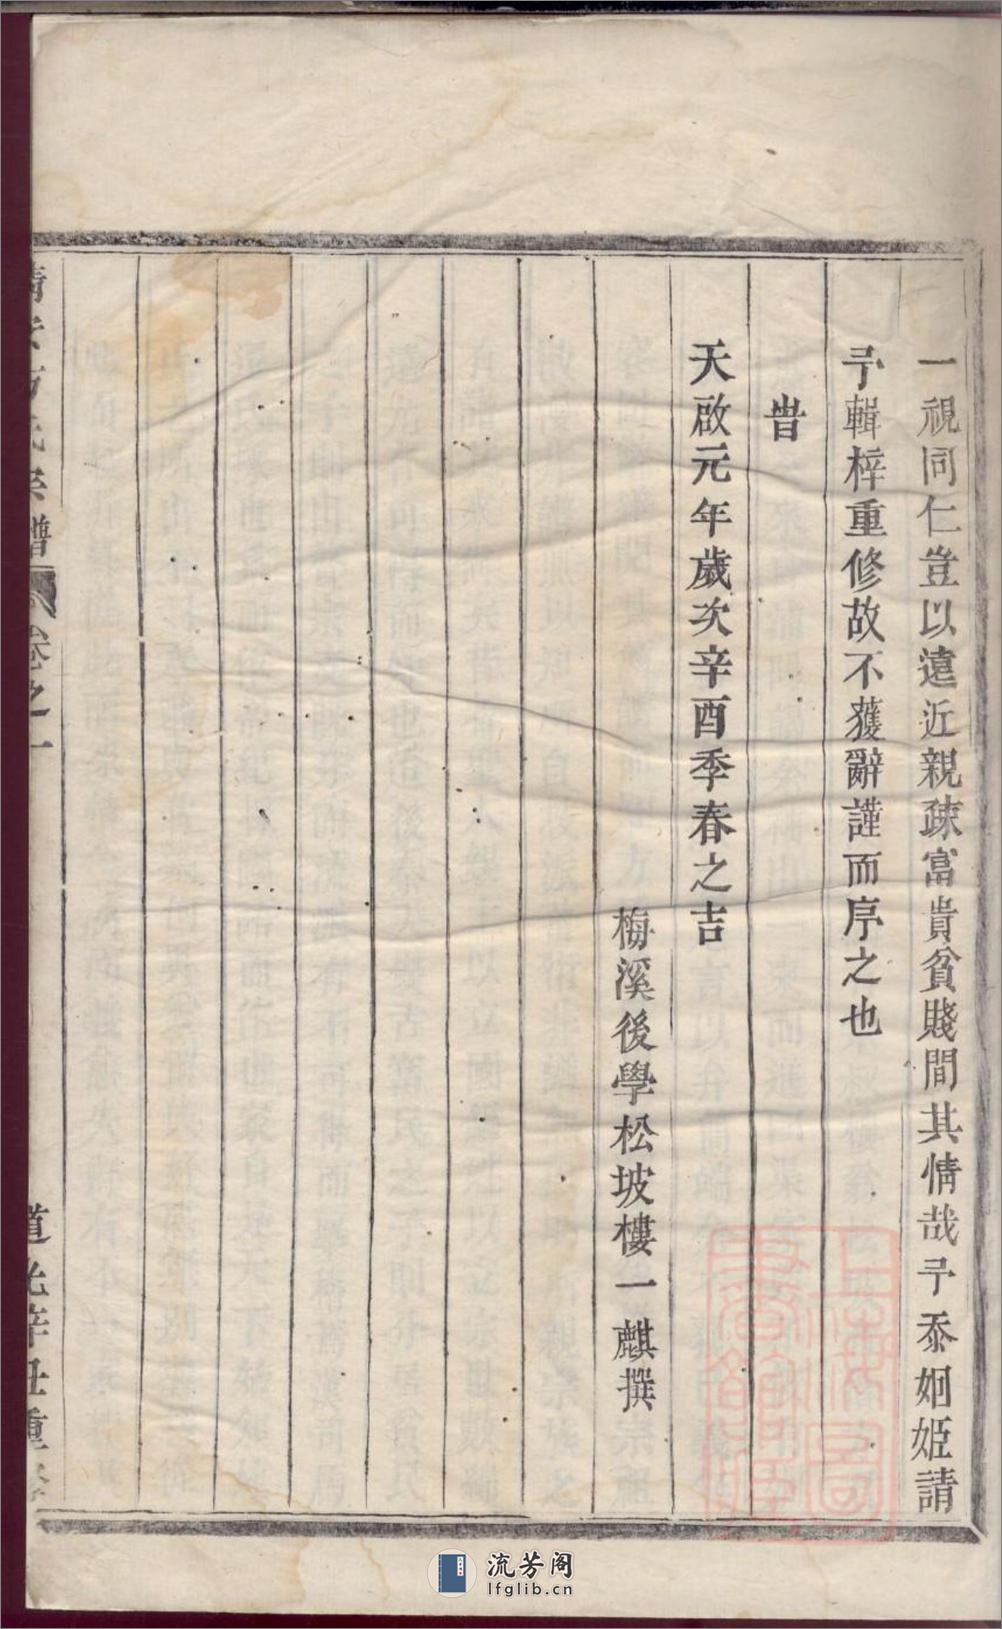 一視同仁豈以遠近親疎富貴貧賤間其情哉予忝姻姬請
予輯梓重修故不獲辭謹而序之也
旹
天啟元年歲次辛酉季春之吉
梅溪後學松坡樓一麒撰
氏宗譜 卷之一 道光辛丑重修
流芳阁
lfglib.cn